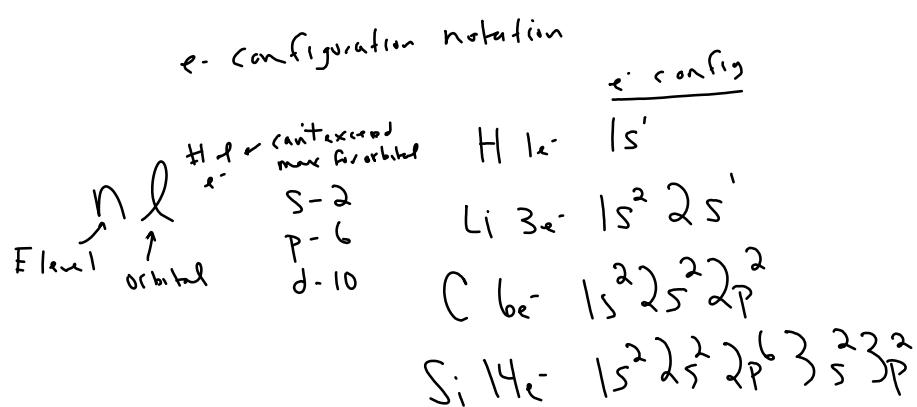 e- configuration notation
n l # of e- can't exceed max for orbital
E level
orbital
s-2
p-6
d-10
e- config
H 1e- 1s¹
Li 3e- 1s² 2s¹
C 6e- 1s² 2s² 2p²
Si 14e- 1s² 2s² 2p⁶ 3s² 3p²